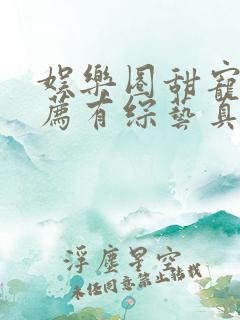 娛樂圈甜寵
薦有綜藝真
浮塵星空
未经同意禁止转载